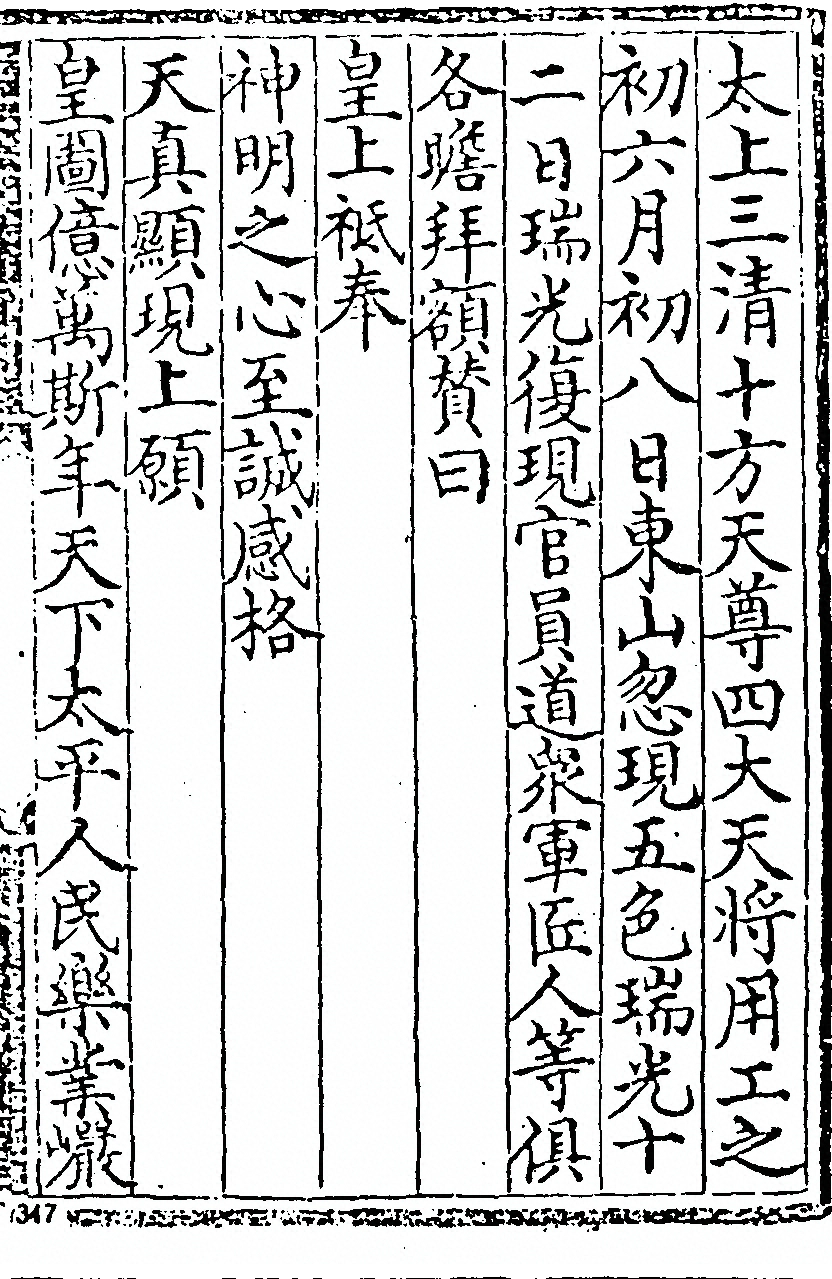 太上三清十方天尊四大天將用工之
初六月初八日東山忽現五色瑞光十
二日瑞光復現官員道衆軍匠人等俱
各瞻拜額賛曰
皇上祗奉
神明之心至誠感格
天真顯現上願
皇圖億萬斯年天下太平人民樂業嚴
347